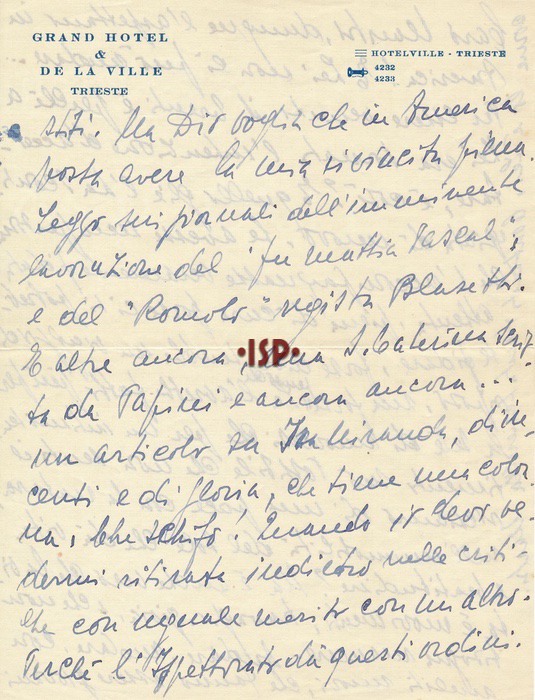 GRAND HOTEL
&
DE LA VILLE
TRIESTE
HOTELVILLE - TRIESTE
4232
4233
stiti. Ma Dio voglia che in America
possa avere la mia rivincita piena.
Leggo sui giornali dell'imminente
lavorazione del "Fu Mattia Pascal",
e del "Romolo" regista Blasetti.
E altre ancora, una S. Caterina scrit-
ta da Papini e ancora ancora...
un articolo su Isa Miranda,
centi e di gloria, che tiene una colon-
na, che schifo! Quando io devo ve-
dermi ritirata indietro nelle criti-
che con uguale merito con un altro.
Perché l'Ispettorato dà questi ordini.
·ISP·